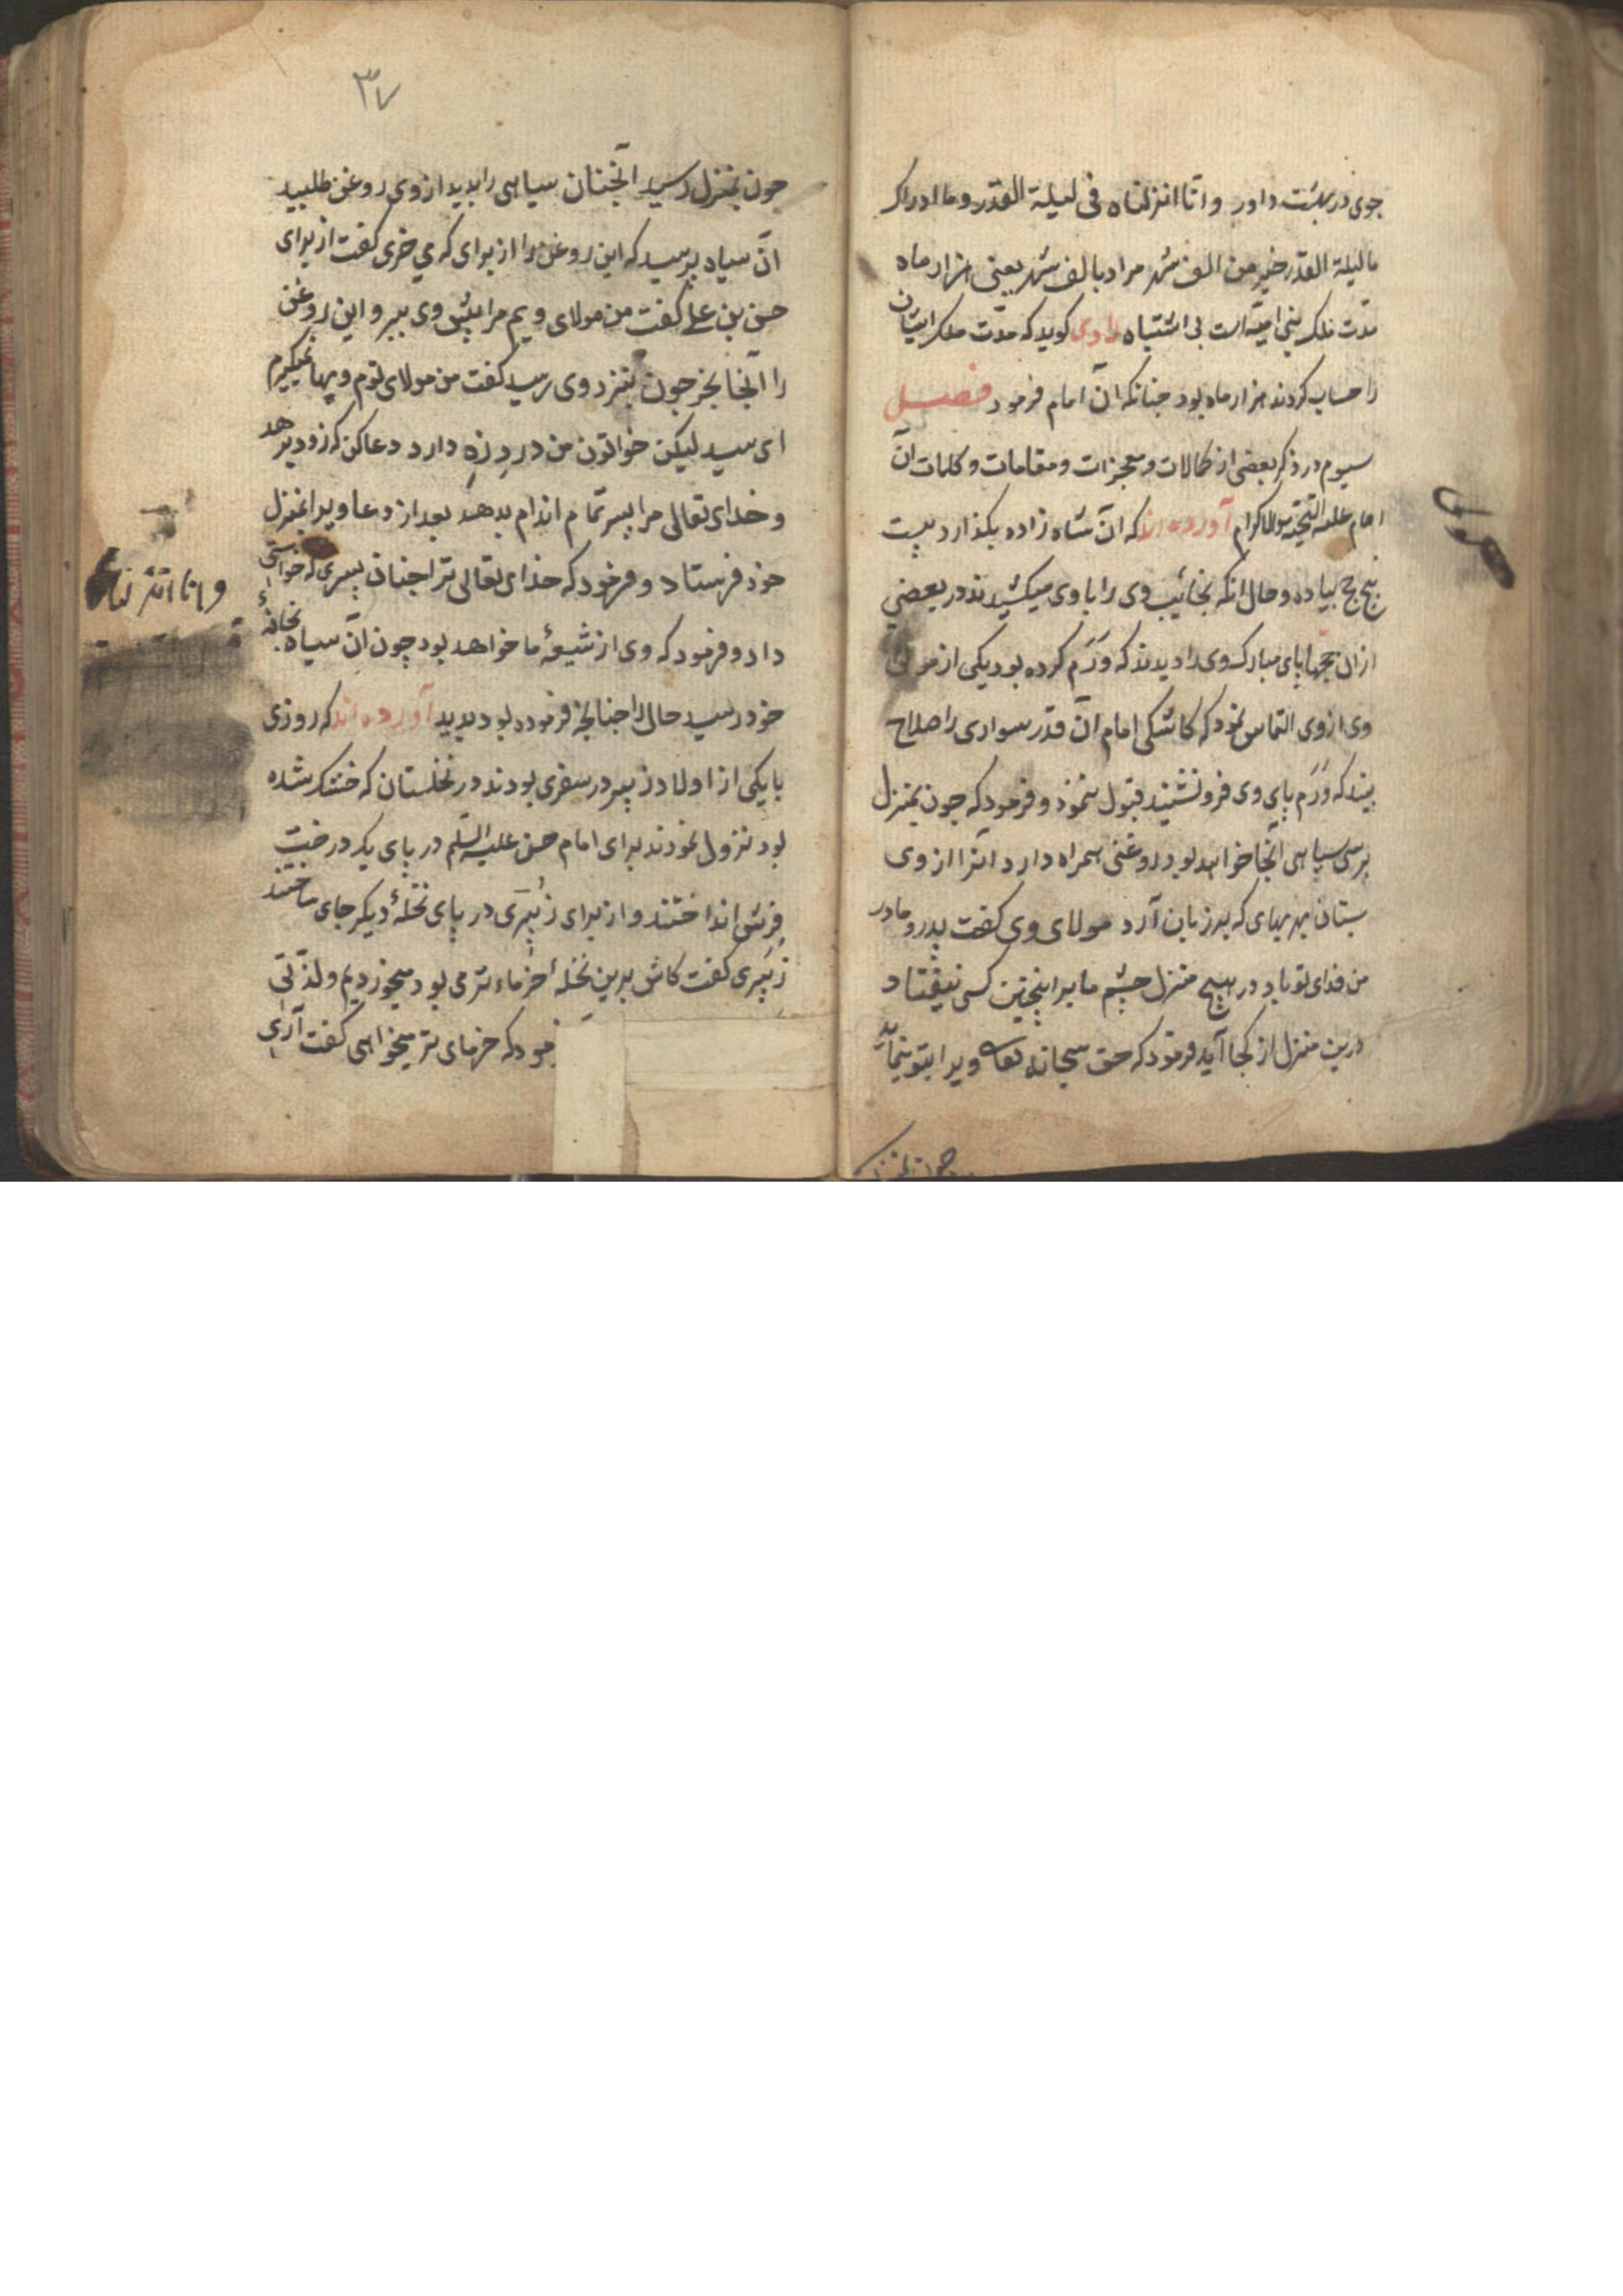 جوی در بهشت دارد و انا انزلناه فی لیلة القدر وما ادراک
ما لیلة القدر خیر من الف شهر مراد بالف شهر یعنی هزار ماه
مدت ملک بنی امیه است بی اشتباه راوی کوید که مدت ملک ایشان
را حساب کردند هزار ماه بود جنانکه آن امام فرمود فصل
سیوم در ذکر بعضی از کمالات و معجزات و مقامات و کلمات آن
امام علیه التحیة والاکرام آورده اند که آن شاه زاده بکذارد بیست
پنج حج پیاده و حال انکه نجائیب وی را با وی میکشیدند در بعضی
از آن حجها پای مبارک وی را دیدند که وَرَم کرده بود یکی از موالی
وی از وی التماس نمود که کاشکی امام آن قدر سواری را صلاح
بیند که وَرَم پای وی فرو نشیند قبول ننمود و فرمود که جون بمنزل
برسی سیاهی آنجا خواهد بود روغنی همراه دارد آنرا از وی
بستان بهر بهای که بر زبان آرد مولای وی کفت پدر و مادر
من فدای تو باد در هیچ منزل چشم ما بر اینچنین کسی نیفتاد
درین منزل از کجا آید فرمود که حق سبحانه تعا ویرا بتو بنماید
جون بمنزل
۳۷
جون بمنزل رسید آنجنان سیاهی را بدید از وی روغن طلبید
آن سیاه پرسید که این روغن را از برای که می خری کفت از برای
حسن بن علی کفت من مولای ویم مرا پیش وی ببر و این روغن
را آنجا بخر جون بنزد وی رسید کفت من مولای توم و بها نمیکیرم
ای سید لیکن خواتون من دردِ زِه دارد دعا کن که زود برهد
و خدای تعالی مرا پسر تمام اندام بدهد بعد از دعا ویرا بمنزل
خود فرستاد و فرمود که خدای تعالی ترا جنان پسری که خواستی
داد و فرمود که وی از شیعهٔ ما خواهد بود چون آن سیاه بخانهٔ
خود رسید حال را جنانجه فرموده بود بدید آورده اند که روزی
با یکی از اولاد زبیر در سفری بودند در نخلستان که خشک شده
بود نزول نمودند برای امام حسن علیه السلم در پای یک درخت
فرش انداختند و از برای زُبیری در پای نخلهٔ دیکر جای ساختند
زبیری کفت کاش برین نخله خرماء تر می بود میخوردیم و لذتی
فرمود که خرمای تر میخواهی کفت آری
و انا انزلناه